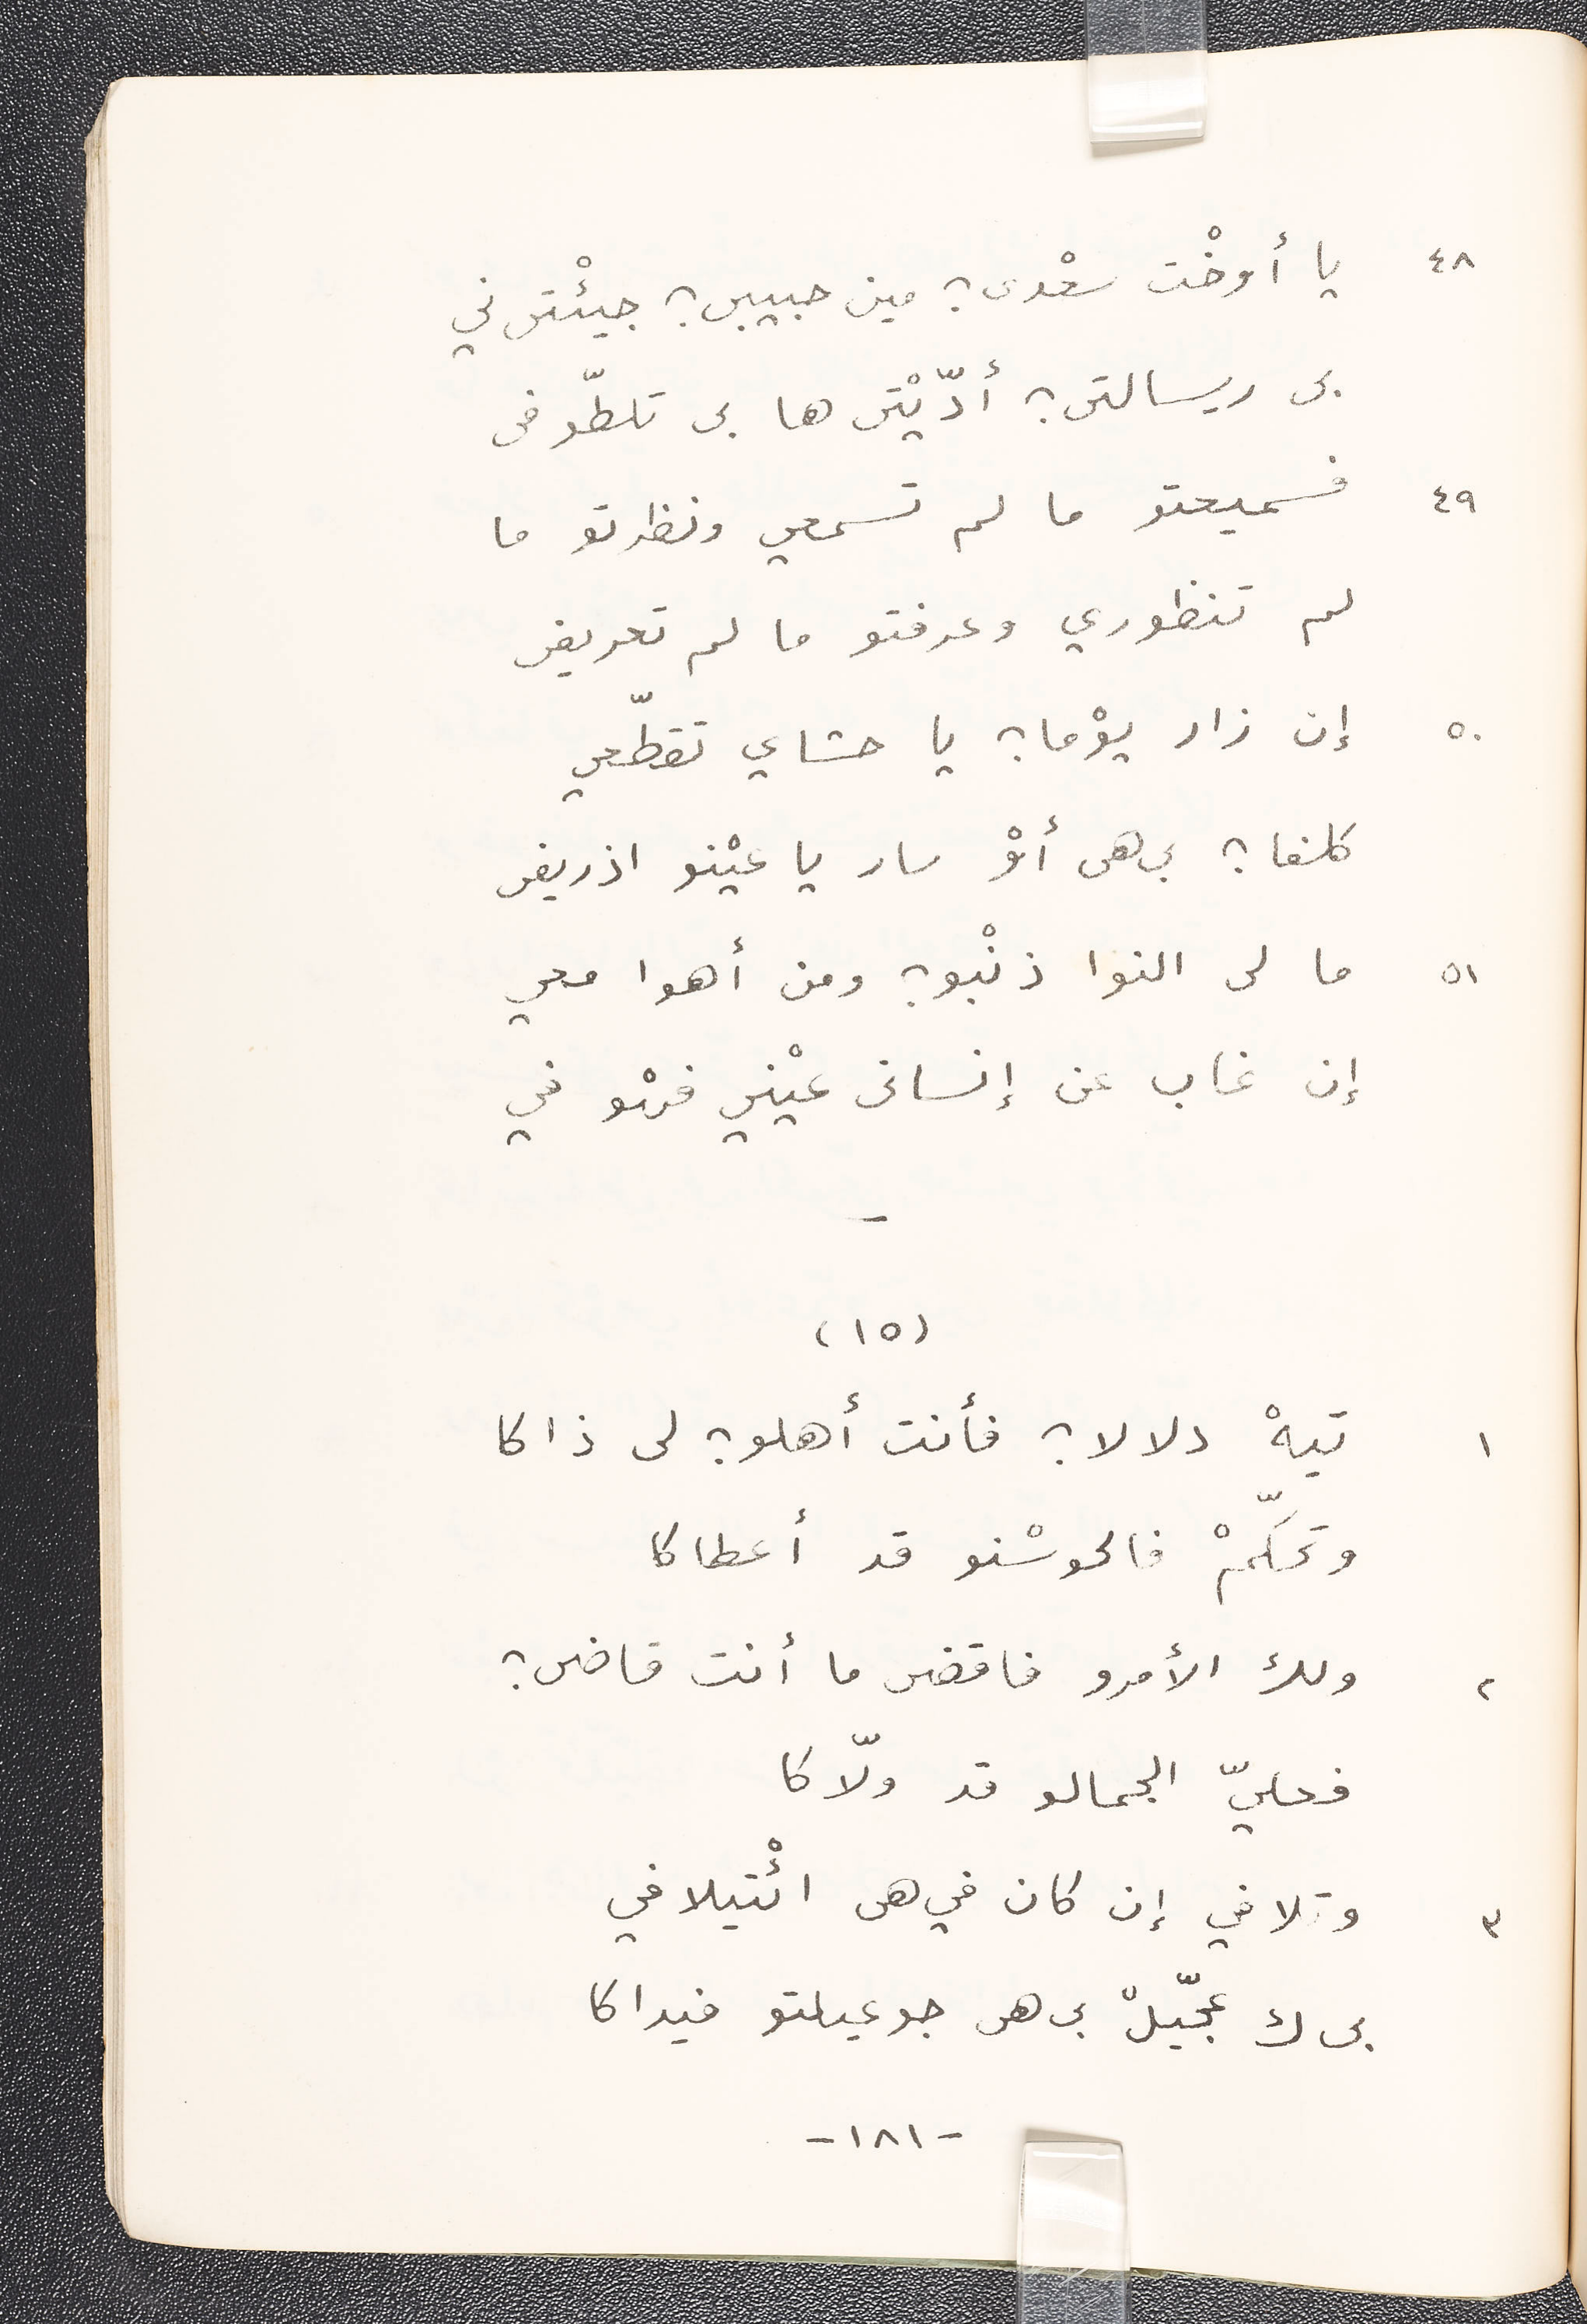 ٤٨ يا أوخْت سعْدى؟ مين حبيبى؟ جيئْتى ني
بى ريسالتى؟ أدّيْتى ها بى تلطّوفى
٤٩ فسميعتو ما لم تسمعي ونظرتو ما
لم تنظوري وعرفتو ما لم تعريفى
٥٠ إن زار يوْما؟ يا حشاي تقطّعي
كلفا؟ بى هى أوْ سار يا عيْنو اذريفى
٥١ ما لى النوا ذنْبو؟ ومن أهوا معي
إن غاب عن إنسانى عيْني فهْو في
–
(١٥)
١ تيهْ دلالا؟ فأنت أهلو؟ لى ذاكا
وتحكّمْ فالحوسْنو قد أعطاكا
٢ ولك الأمرو فاقضى ما أنت قاضى؟
فعليّ الجمالو قد ولّاكا
٣ وتلافي إن كان في هى ائْتيلافي
بى ك عجّيلْ بى هى جوعيلتو فيداكا
-١٨١-